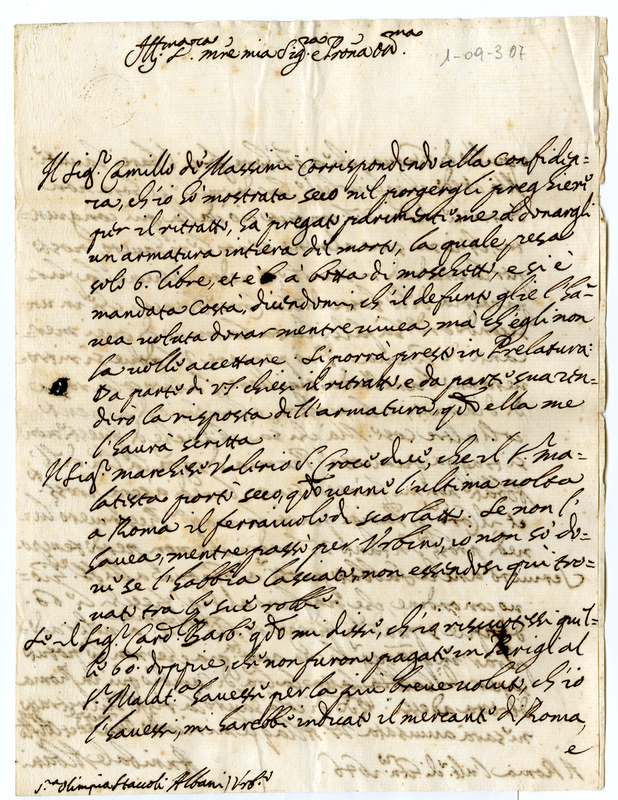 Ill.ma mia Sig.ra e Pro.na Oss.ma
1-09-3 07
Il Sig.r Camillo de Massimi corrispondendo alla confiden=
za, ch'io hò mostrata seco nel porgergli preghiere
per il ritratto, hà pregato parimente me à donargli
un'armatura intiera del morto, la quale pesa
solo 6. libre, et è à botta di moschetto, e si è
mandata costà, dicendomi, ch'il defunto glie l'ha=
uea voluta donar mentre viuea, mà ch'egli non
la volle accettare. Si porrà presto in Prelatura:
Da parte di V.S. chiesi il ritratto, e da parte sua ren=
derò la risposta dell'armatura, q.do ella me
l'haurà scritta.
Il Sig.r marchese Valerio S. Croce dice, che il S.r Ma=
latesta portò seco, q.do venne l'ultima volta
à Roma il ferraiuolo di scarlatto. Se non l'
hauea, mentre passò per Urbino, io non sò do=
ue se l'habbia lasciato, non essendosi quì tro=
uato trà le sue robbe.
Se il Sig.r Card. Barb.o q.do mi disse, ch'io riscuotessi quel=
le 60. doppie, che non furono pagate in Parigi al
S.r Malat.a hauesse per la più breue voluto, ch'io
l'hauessi, mi harebbe indicato il mercante di Roma,
e
S.ra Olimpia Staccoli Albani / Urb.o